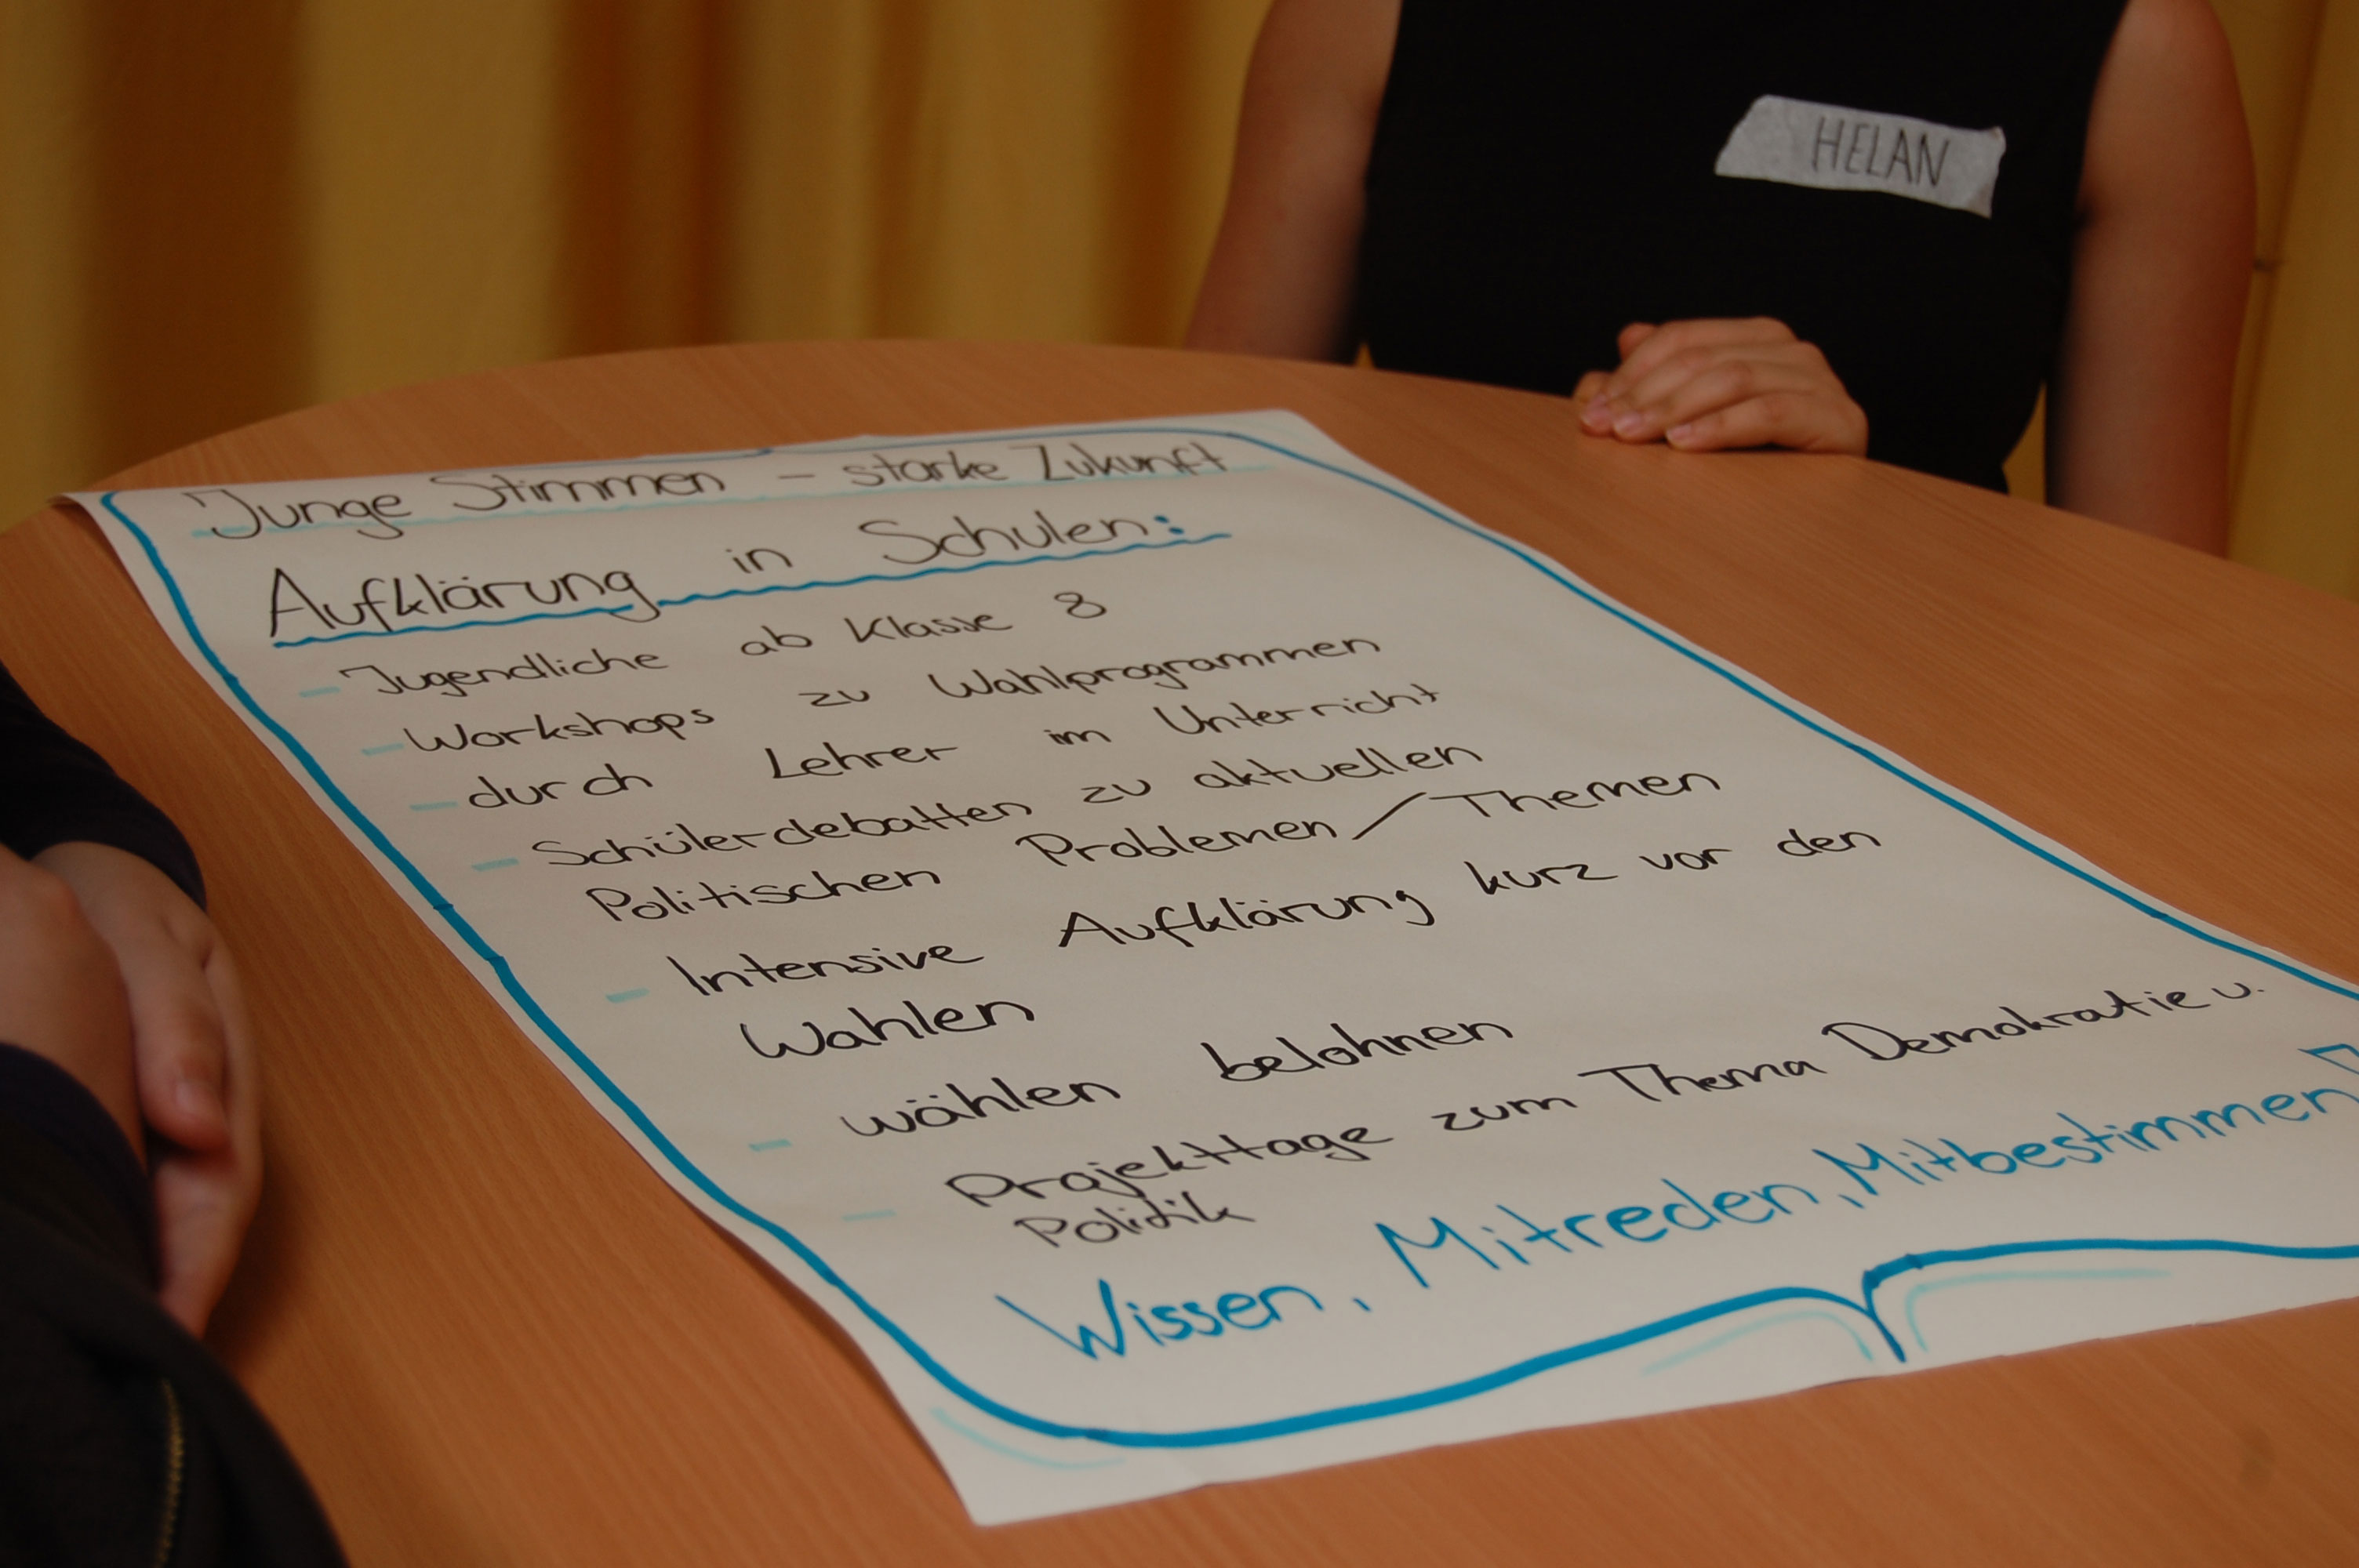 HELAN
Junge Stimmen – starke Zukunft
Aufklärung in Schulen:
- Jugendliche ab Klasse 8
- Workshops zu Wahlprogrammen
- durch Lehrer im Unterricht
- Schülerdebatten zu aktuellen
Politischen Problemen/Themen
- Intensive Aufklärung kurz vor den
Wahlen
- wählen belohnen
- Projekttage zum Thema Demokratie u.
Politik
Wissen, Mitreden, Mitbestimmen!